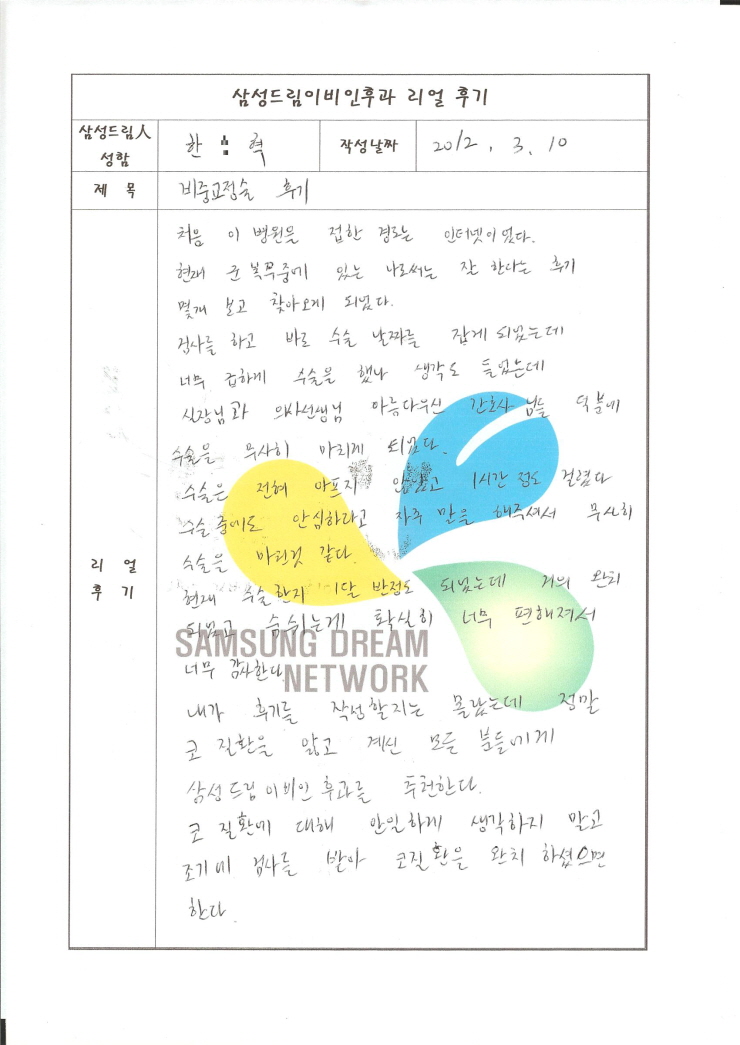 삼성드림이비인후과 리얼 후기
삼성드림人 성함
한 혁
작성날짜
2012. 3. 10
제 목
비중교정술 후기
리 얼 후 기
처음 이 병원을 접한 경로는 인터넷이었다.
현재 군 복무중에 있는 나로써는 잘 한다는 후기
몇개 보고 찾아오게 되었다.
검사를 하고 바로 수술 날짜를 잡게 되었는데
너무 급하게 수술을 했나 생각도 들었는데
실장님과 의사선생님 아름다우신 간호사님들 덕분에
수술은 무사히 마치게 되었다.
수술은 전혀 아프지 않았고 1시간 정도 걸렸다
수술중에도 안심하라고 자주 말을 해주셔서 무사히
수술을 마친것 같다.
현재 수술한지 1달 반정도 되었는데 거의 완치
되었고 숨쉬는게 확실히 너무 편해져서
너무 감사한다.
SAMSUNG DREAM
NETWORK
내가 후기를 작성할지는 몰랐는데 정말
코 질환을 앓고 계신 모든 분들에게
삼성드림이비인후과를 추천한다.
코 질환에 대해 안일하게 생각하지 말고
조기에 검사를 받아 코질환을 완치 하셨으면
한다.